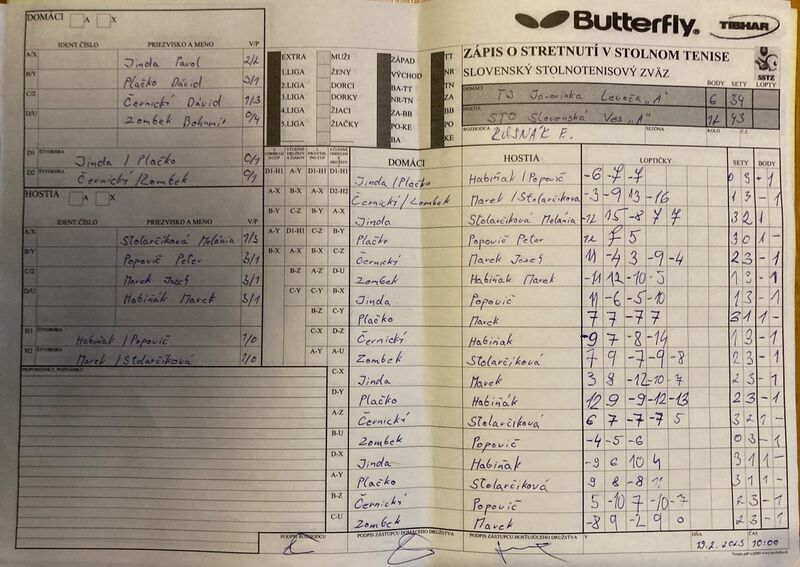 DOMÁCI A X
Butterfly. TIBHAR
IDENT.ČÍSLO PRIEZVISKO A MENO V/P
A/X Jinda Pavol 2/2
B/Y Plačko Dávid 3/1
C/Z Černický Dávid 1/3
D/U Zombek Bohumil 0/4
D1 ŠTVORHRA Jinda / Plačko 0/1
D2 ŠTVORHRA Černický / Zombek 0/1
HOSTIA A X
IDENT.ČÍSLO PRIEZVISKO A MENO V/P
A/X Stolarčiková Melánia 1/3
B/Y Popovič Peter 3/1
C/Z Marek Jozef 3/1
D/U Habiňák Marek 3/1
H1 ŠTVORHRA Habiňák / Popovič 1/0
H2 ŠTVORHRA Marek / Stolarčiková 1/0
PRIPOMIENKY, POZNÁMKY
EXTRA MUŽI ZÁPAD TT
1.LIGA ŽENY VÝCHOD NR
2.LIGA DORCI BA-TT TN
3.LIGA DORKY NR-TN ZA
4.LIGA ŽIACI ZA-BB BB
5.LIGA ŽIAČKY PO-KE PO
BA KE
ZÁPIS O STRETNUTÍ V STOLNOM TENISE
SLOVENSKÝ STOLNOTENISOVÝ ZVÄZ SSTZ
BODY SETY LOPTY
DOMÁCI TJ Javorinka Levoča "A" 6 34
HOSTIA STO Slovenská Ves "A" 12 43
ROZHODCA RUSNÁK F. SEZÓNA KOLO Č.Z.
DOMÁCI HOSTIA LOPTIČKY SETY BODY
D1-H1 A-Y D1-H1 D1-H1 Jinda / Plačko Habiňák / Popovič -6 -7 -7 0 3 - 1
A-X B-X A-X D2-H2 Černický / Zombek Marek / Stolarčiková -3 -9 13 -16 1 3 - 1
B-Y C-Z B-Y A-X Jinda Stolarčiková Melánia -12 15 -8 7 7 3 2 1
A-Y D1-H1 C-Z B-Y Plačko Popovič Peter 12 7 5 3 0 1 -
B-X A-X B-X C-Z Černický Marek Jozef 11 -4 3 -9 -4 2 3 - 1
B-Z A-Z D-U Zombek Habiňák Marek -11 12 -10 -5 1 3 - 1
C-Y C-Y B-X Jinda Popovič 11 -6 -5 -10 1 3 - 1
B-Z C-Y Plačko Marek 7 7 -7 7 3 1 1 -
C-X D-Z Černický Habiňák -9 7 -8 -14 1 3 - 1
A-Y A-U Zombek Stolarčiková 7 9 -7 -9 -8 2 3 - 1
C-X Jinda Marek 3 8 -12 -10 -7 2 3 - 1
D-Y Plačko Habiňák 12 9 -9 -12 -13 2 3 - 1
A-Z Černický Stolarčiková 6 7 -7 -7 5 3 2 1 -
B-U Zombek Popovič -4 -5 -6 0 3 - 1
D-X Jinda Habiňák -9 6 10 4 3 1 1 -
A-Y Plačko Stolarčiková 9 8 -8 11 3 1 1 -
B-Z Černický Popovič 5 -10 7 -10 -7 2 3 - 1
C-U Zombek Marek -8 9 -2 9 0 2 3 - 1
PODPIS ROZHODCU PODPIS ZÁSTUPCU DOMÁCEHO DRUŽSTVA PODPIS ZÁSTUPCU HOSŤUJÚCEHO DRUŽSTVA V DŇA ČAS
10:00